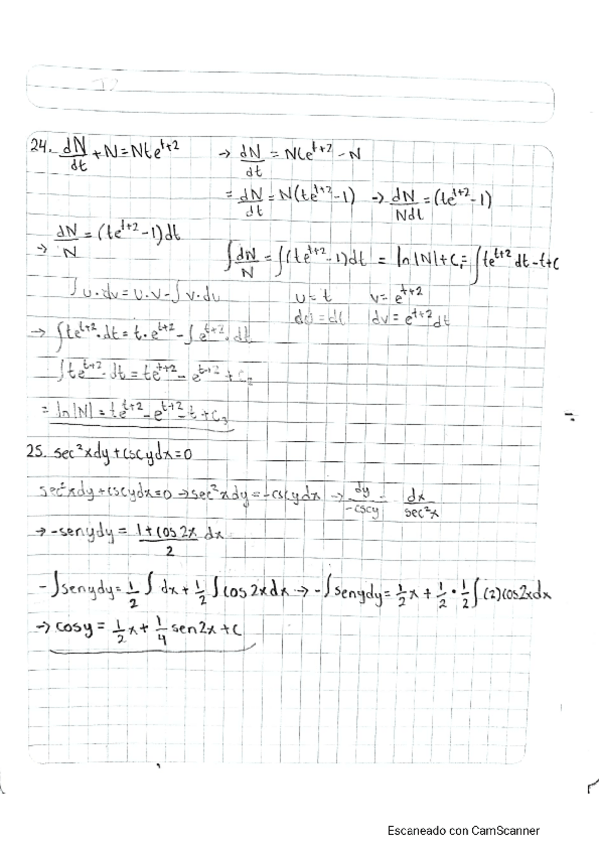 24. dN/dt + N = Nte^(t+2) → dN/dt = Nte^(t+2) - N
= dN/dt = N(te^(t+2) - 1) → dN/Ndt = (te^(t+2) - 1)
→ dN/N = (te^(t+2) - 1)dt
∫dN/N = ∫(te^(t+2) - 1)dt = ln|N| + C₁ = ∫te^(t+2) dt - t + C
∫u·dv = u·v - ∫v·du u = t v = e^(t+2)
du = dt dv = e^(t+2)dt
→ ∫te^(t+2)·dt = t·e^(t+2) - ∫e^(t+2) dt
∫te^(t+2)·dt = te^(t+2) - e^(t+2) + C₂
= ln|N| = te^(t+2) - e^(t+2) - t + C₃
25. sec²xdy + cscydx = 0
sec²xdy + cscydx = 0 → sec²xdy = -cscydx → dy/-cscy = dx/sec²x
→ -senydy = 1+cos2x/2 dx
-∫senydy = 1/2 ∫dx + 1/2 ∫cos2xdx → -∫senydy = 1/2 x + 1/2 · 1/2 ∫(2)cos2xdx
→ cosy = 1/2 x + 1/4 sen2x + C
Escaneado con CamScanner